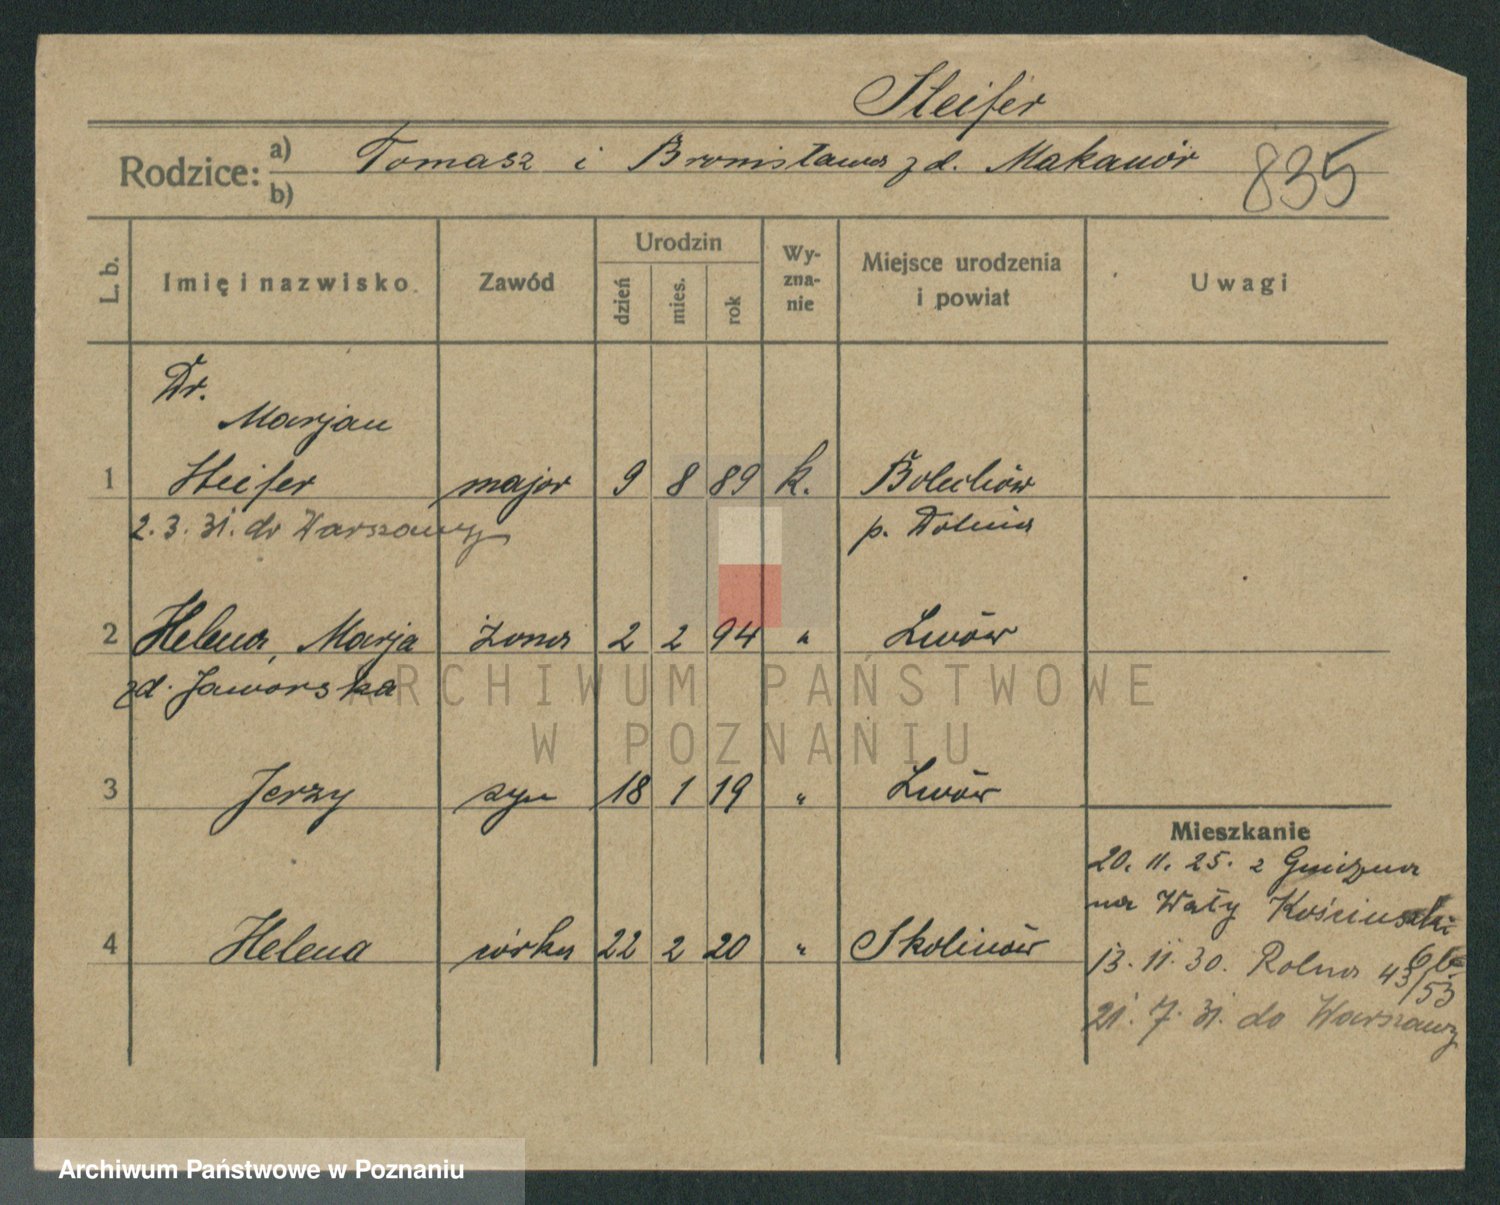 Steifer
Rodzice: a) Tomasz i Bronisława zd. Makauór
b)
835
L. b. Imię i nazwisko. Zawód Urodzin dzień mies. rok Wy-zna-nie Miejsce urodzenia i powiat Uwagi
Dr.
Marjan
1 Steifer major 9 8 89 k. Bolechów
2. 3. 31. do Warszawy p. Dolina
2 Helena, Marja żona 2 2 94 " Lwów
zd. Jaworska
3 Jerzy syn 18 1 19 " Lwów
Mieszkanie
20. 11. 25. z Gniezna
na Wały Kościuszki
4 Helena córka 22 2 20 " Skolinów
13. 11. 30. Rolna 43/53
21. 7. 31. do Warszawy
ARCHIWUM PAŃSTWOWE
W POZNANIU
Archiwum Państwowe w Poznaniu